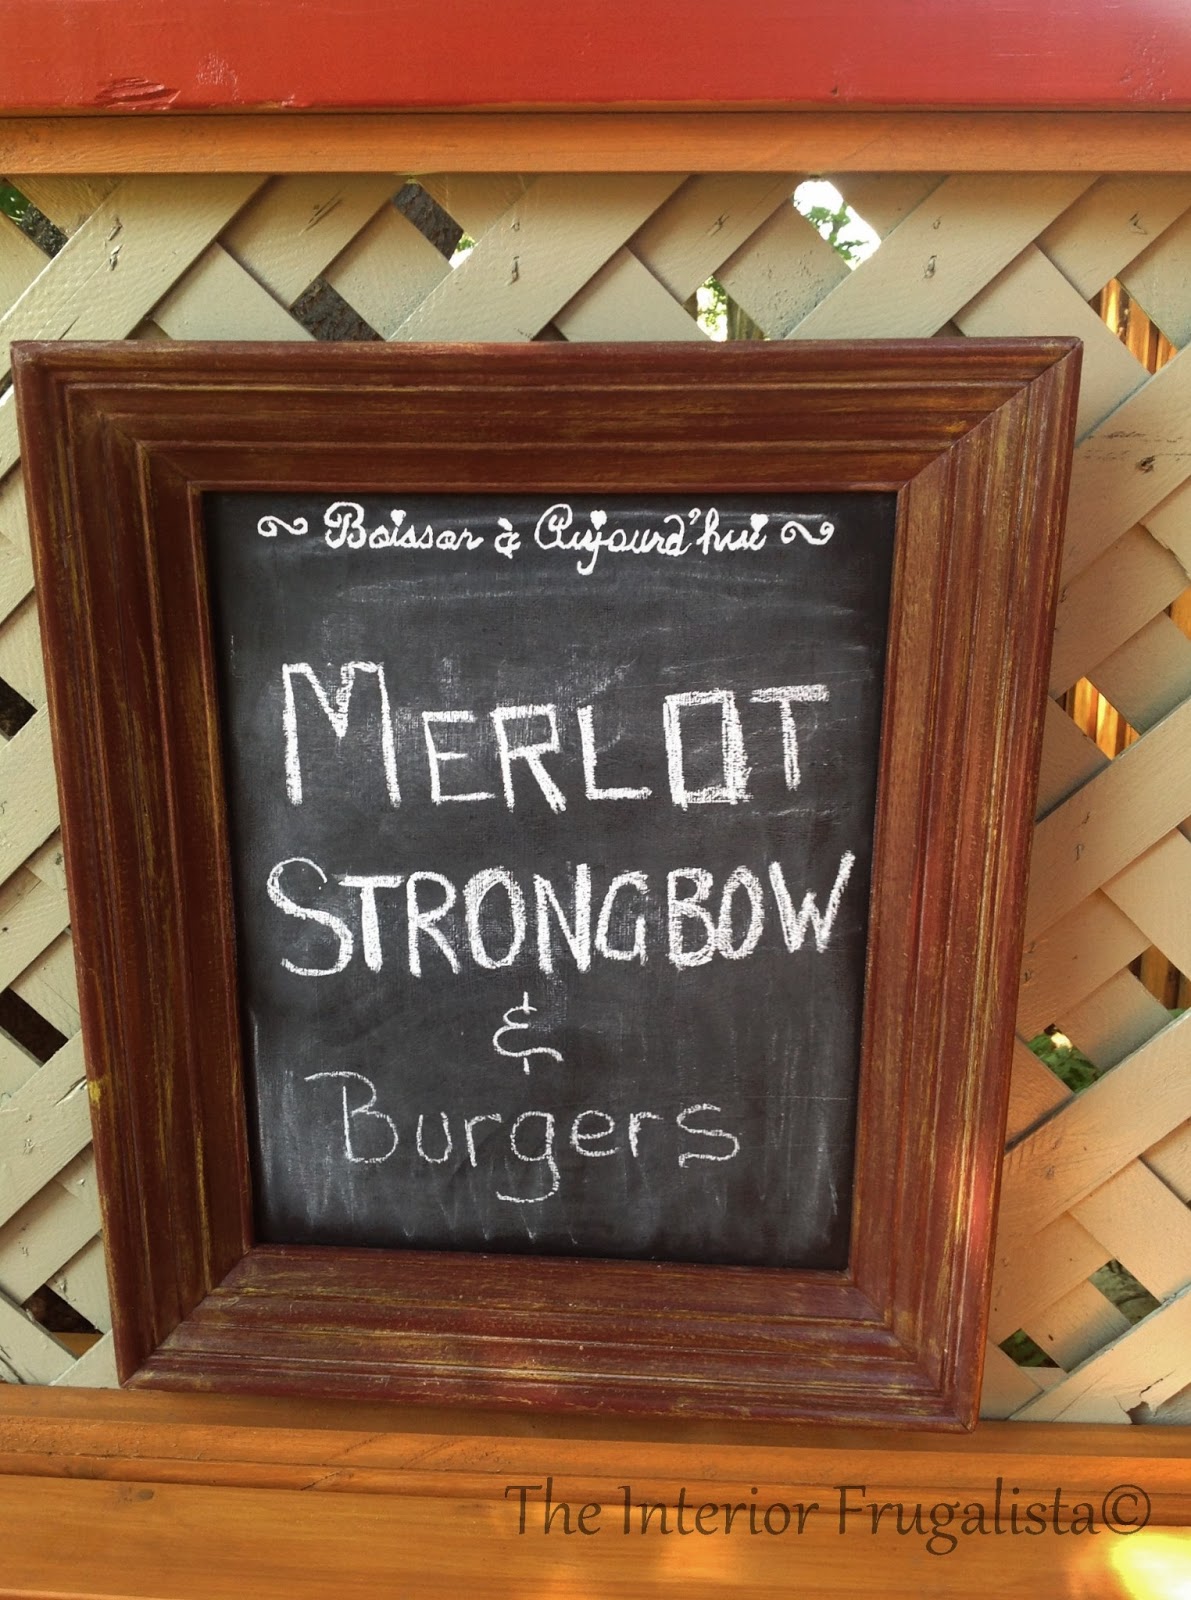 ~ Boisson à Aujourd'hui ~
MERLOT
STRONGBOW
&
Burgers
The Interior Frugalista©